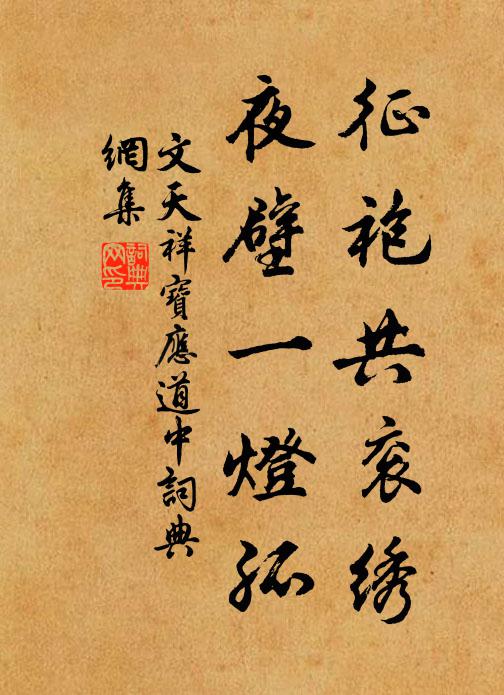 征袍共衮绣
夜壁一燈孤
文天祥寶應道中詞典
網集
詞典网印